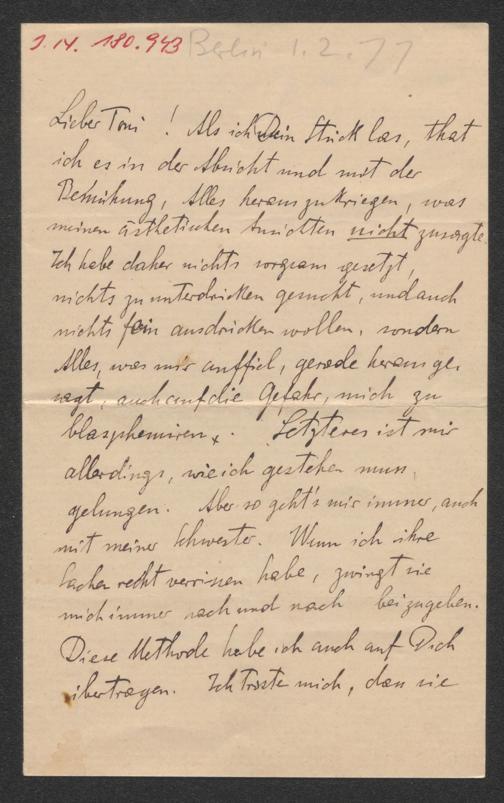 I.N. 180.943 Berlin 1.2.77
Lieber Toni! Als ich Dein Stück las, that
ich es in der Absicht und mit der
Bemühung, Alles herauszukriegen, was
meinen ästhetischen Ansichten nicht zusagte.
Ich habe daher nichts sorgsam gesetzt,
nichts zu unterdrücken gesucht, und auch
nichts fein ausdrücken wollen, sondern
Alles, was mir auffiel, gerade herausge-
sagt, auch auf die Gefahr, mich zu
blasphemiren. Letzteres ist mir
allerdings, wie ich gestehen muss,
gelungen. Aber so geht's mir immer, auch
mit meiner Schwester. Wenn ich ihre
Sachen recht verrissen habe, zwingt sie
mich immer nach und nach beizugeben.
Diese Methode habe ich auch auf Dich
übertragen. Ich tröste mich, dass sie